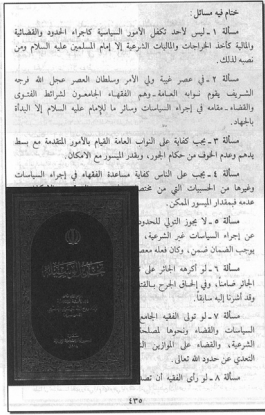 ختام فيه مسائل:
مسألة ١ ـ ليس لأحد تكفل الأمور السياسية كاجراء الحدود والقضائية
والمالية كأخذ الخراجات والماليات الشرعية إلا إمام المسلمين عليه السلام ومن
نصبه لذلك.
مسألة ٢ ـ في عصر غيبة ولي الأمر وسلطان العصر عجل الله فرجه
الشريف يقوم نوابه العامة ـ وهم الفقهاء الجامعون لشرائط الفتوى
والقضاء ـ مقامه في إجراء السياسات وسائر ما للإمام عليه السلام إلا البدأة
بالجهاد.
مسألة ٣ ـ يجب كفاية على النواب العامة القيام بالأمور المتقدمة مع بسط
يدهم وعدم الخوف من حكام الجور، وبقدر الميسور مع الامكان.
مسألة ٤ ـ يجب على الناس كفاية مساعدة الفقهاء في إجراء السياسات
وغيرها من الحسبيات التي من
عدمه فبمقدار الميسور الممكن.
مسألة ٥ ـ لا يجوز التولي للحدود
عن إجراء السياسات غير الشرعية،
يوجب الضمان ضمن، وكان فعله
مسألة ٦ ـ لو أكرهه الجائر على
الجائر ضامناً، وفي إلحاق الجرح
وقد أشرنا إليه سابقاً.
مسألة ٧ ـ لو تولى الفقيه الجامع
السياسات والقضاء ونحوها لمصلحة
الشرعية، والقضاء على الموازين
التعدي عن حدود الله تعالى.
مسألة ٨ ـ لو رأى الفقيه أن
٤٣٥